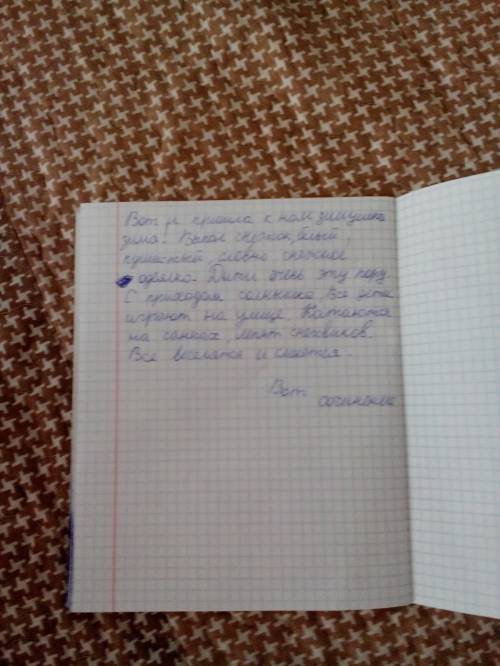 Вот и пришла к нам зимушка
зима. Выпал снежок, белый
пушистый, словно снежное
одеялко. Дити очень эту пору.
С приходом солнышка Все дети
играют на улице. Катаются
на санках, лепят снеговиков.
Все веселятся и смеются.
Вот
сочинение